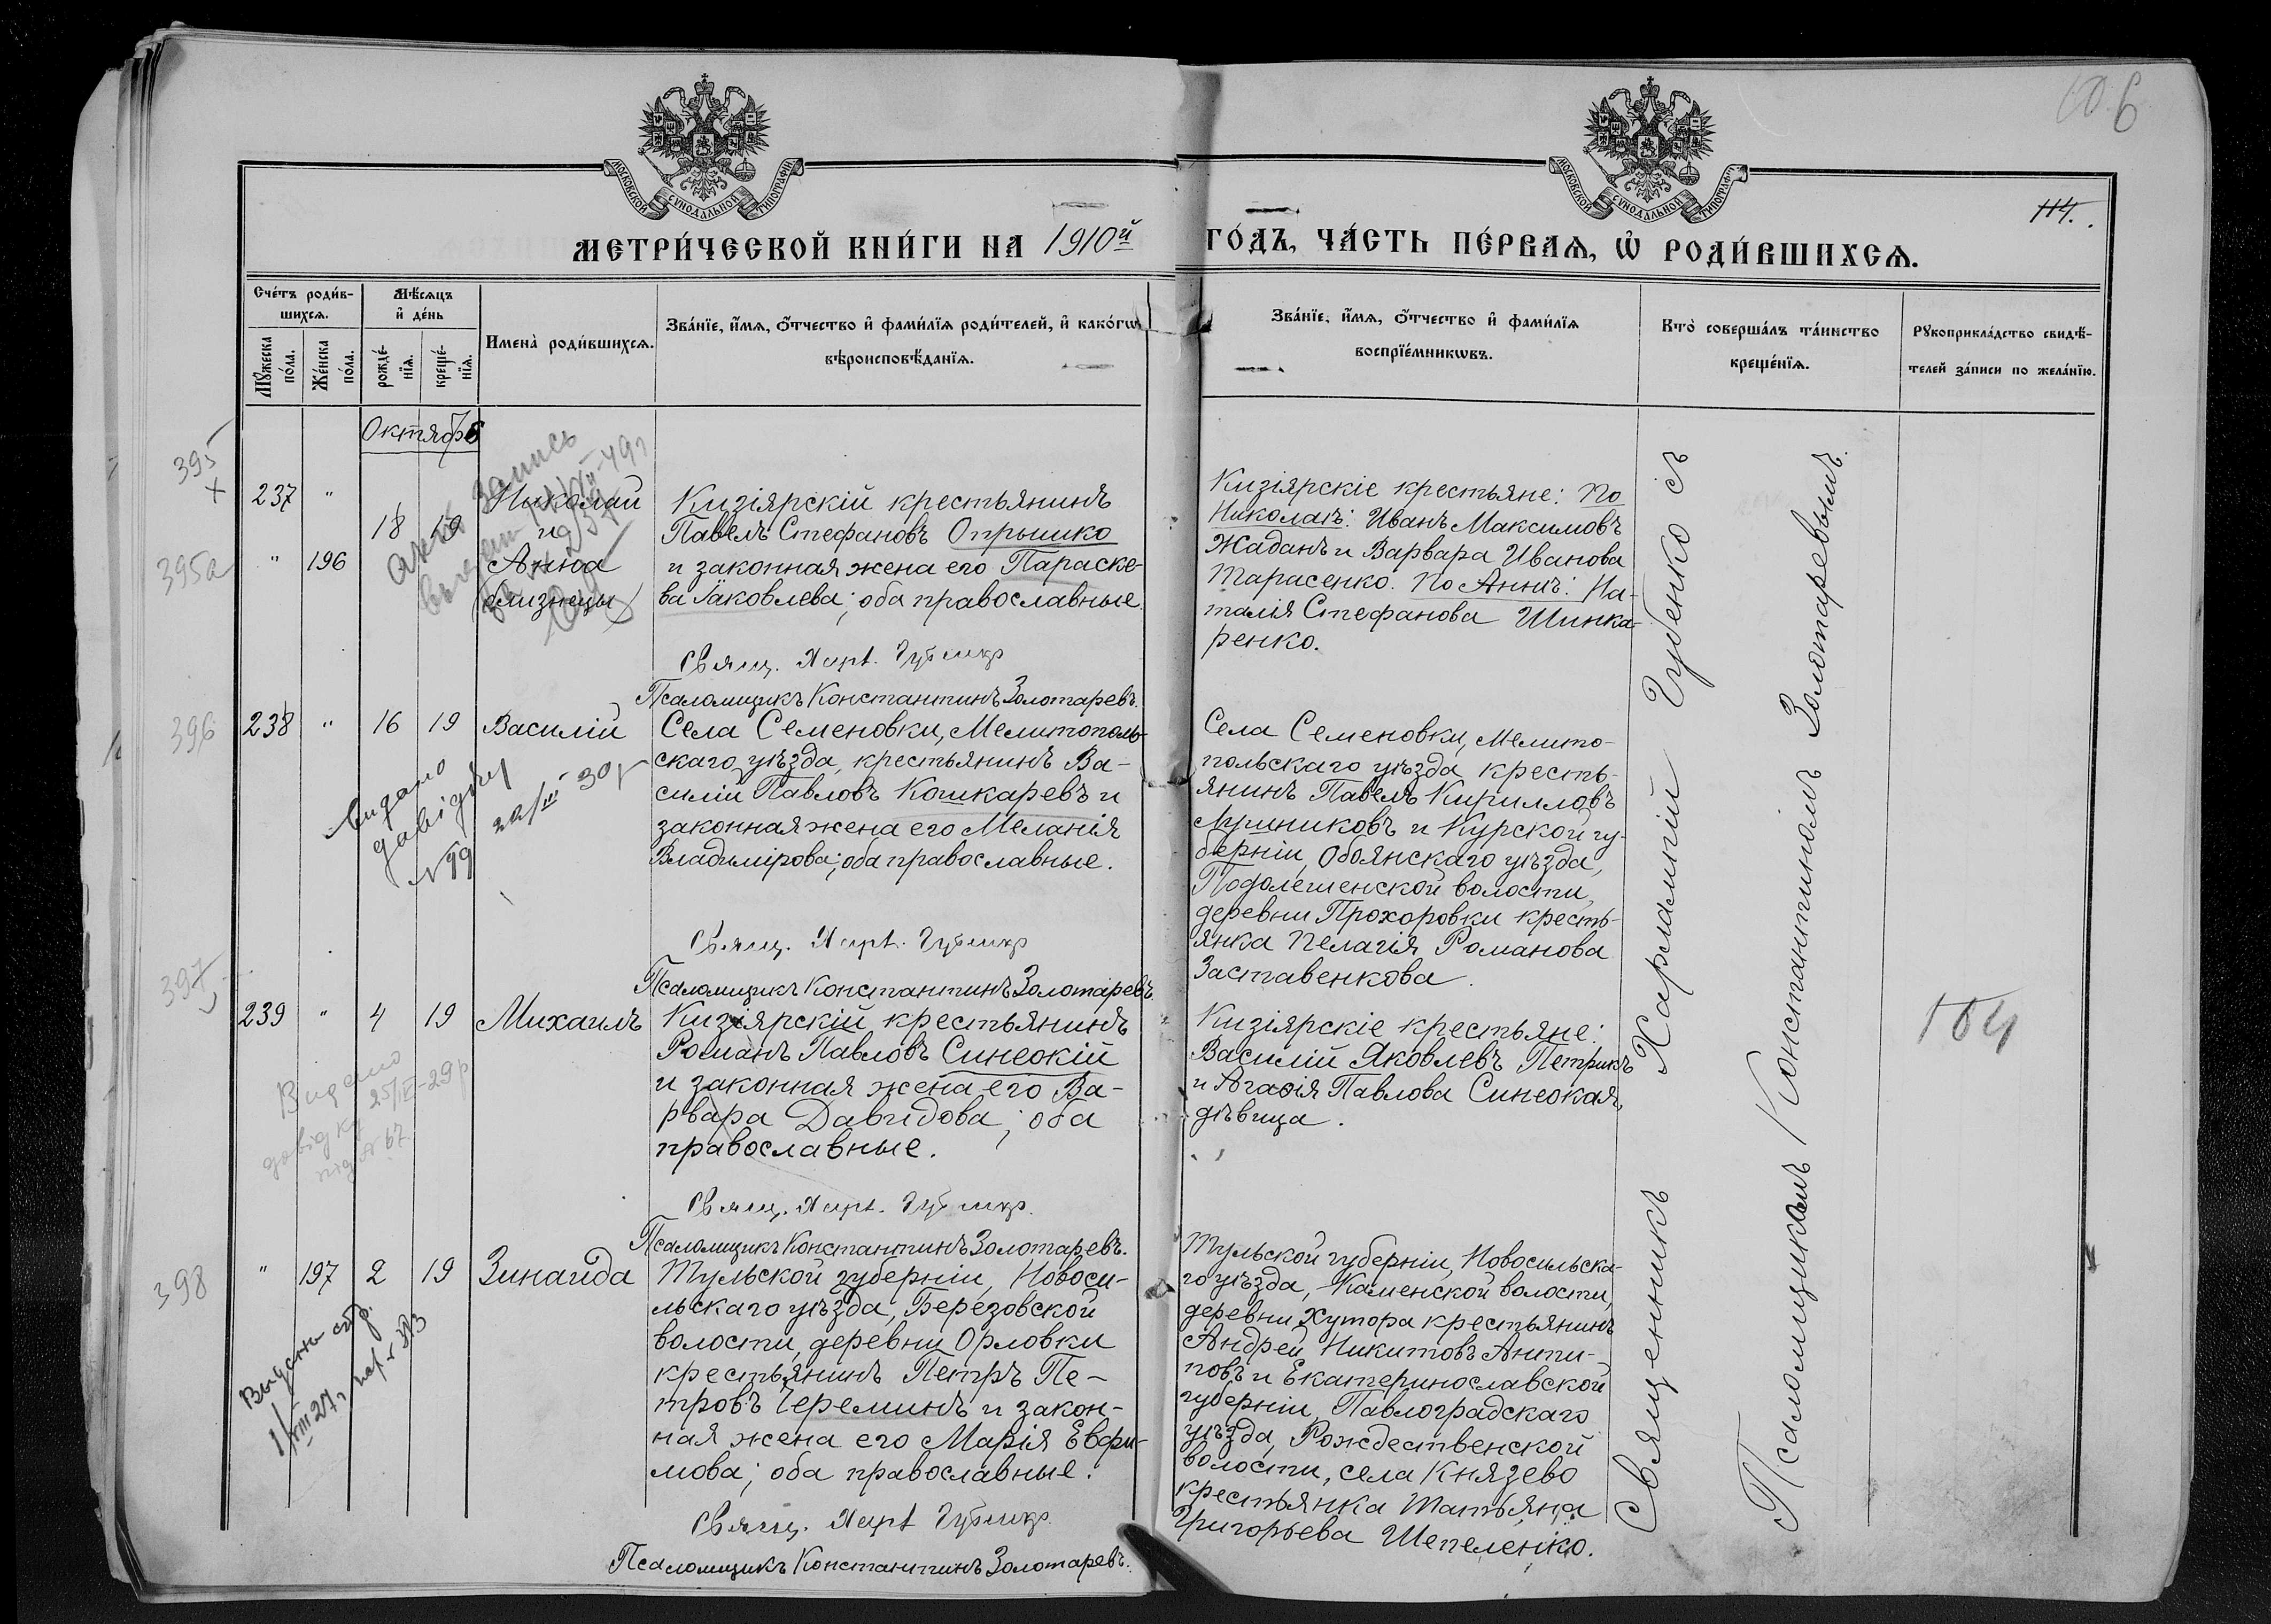 106
114.
МОСКОВСКОЙ СѴНОДАЛЬНОЙ ТИПОГРАФІИ
МОСКОВСКОЙ СѴНОДАЛЬНОЙ ТИПОГРАФІИ
МЕТРИ́ЧЕСКОЙ КНИ́ГИ НА 1910й ГО́ДЪ, ЧА́СТЬ ПЕ́РВАѦ, Ѡ҆ РОДИ́ВШИХСѦ.
Сче́тъ роди́в-
шихсѧ.
Мꙋ́жеска по́ла.
Же́нска по́ла.
Мѣ́сѧцъ
и҆ де́нь
рожде́-
нїѧ.
креще́-
нїѧ.
Имена̀ роди́вшихсѧ.
Зва́нїе, и҆́мѧ, ѻ҆́тчество и҆ фами́лїѧ роди́телей, и҆ како́гѡ
вѣроисповѣ́данїѧ.
Зва́нїе, и҆́мѧ, ѻ҆́тчество и҆ фами́лїѧ
воспрїе́мникѡвъ.
Кто̀ соверша́лъ та́инство
креще́нїѧ.
Рꙋкоприкла́дство свидѣ́-
телей за́писи по жела́нїю.
Октябрь
395
237 "
18 19
395а
" 196
Николай
и
Анна
(близнецы)
Кизіярскій крестьянинъ
Павелъ Стефановъ Опрышко
и законная жена его Параске-
ва Іаковлева; оба православные.
Свящ. Харл. Губенко
Псаломщикъ Константинъ Золотаревъ.
Кизіярскіе крестьяне: По
Николаѣ: Иванъ Максимовъ
Жаданъ и Варвара Иванова
Тарасенко. По Аннѣ: На-
талія Стефанова Шинка-
ренко.
396
238 " 16 19 Василій
Села Семеновки, Мелитополь-
скаго уѣзда, крестьянинъ Ва-
силій Павловъ Кошкаревъ и
законная жена его Меланія
Владимірова; оба православные.
Свящ. Харл. Губенко
Псаломщикъ Константинъ Золотаревъ.
видано
довідку
N 99
Села Семеновки, Мелито-
польскаго уѣзда, кресть-
янинъ Павелъ Кирилловъ
и Курской гу-
берніи, Обоянскаго уѣзда,
Подолешенской волости,
деревни Прохоровки кресть-
янка Пелагія Романова
Заставенкова.
397
239 " 4 19 Михаилъ
Кизіярскій крестьянинъ
Романъ Павловъ Синеокій
и законная жена его Ва-
рвара Давидова; оба
православные.
Свящ. Харл. Губенко.
Псаломщикъ Константинъ Золотаревъ.
Видано 25/IV-29р
довідку
під № 67.
Кизіярскіе крестьяне:
Василій Яковлевъ Петрикъ
и Агафія Павлова Синеокая,
дѣвица.
104
398
" 197 2 19 Зинаида
Тульской губерніи, Новоси-
льскаго уѣзда, Березовской
волости, деревни Орловки
крестьянинъ Петръ Пе-
тровъ Череминъ и закон-
ная жена его Марія Евфи-
мова; оба православные.
Свящ. Харл. Губенко.
Псаломщикъ Константинъ Золотаревъ.
Тульской губерніи, Новосильска-
го уѣзда, Каменской волости,
деревни Хутора крестьянинъ
Андрей Никитовъ Анти-
повъ и Екатеринославской
губерніи, Павлоградскаго
уѣзда, Рождественской
волости, села Князево
крестьянка Татьяна
Григорьева Шепеленко.
Священникъ Харлампій Губенко съ
Псаломщикомъ Константиномъ Золотаревымъ.